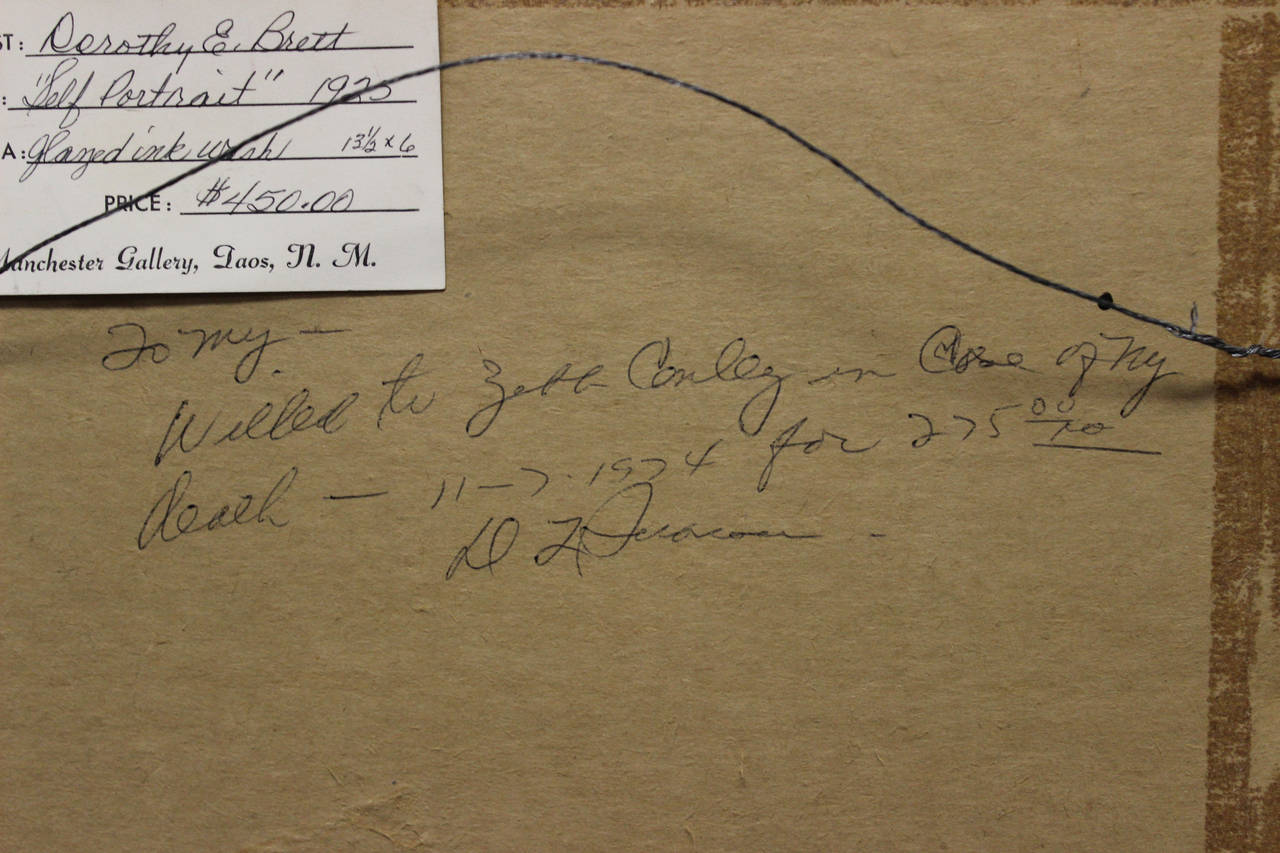 ST: Dorothy E. Brett
: "Self Portrait" 1925
A: glazed ink wash 13½ x 6
PRICE: $450.00
Manchester Gallery, Taos, N. M.
To my —
Willed to Conley in Case of My
death — 11-7-1974 for 275 00
D